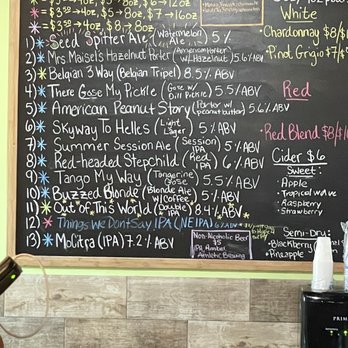 *= $3.50→4oz, $5→8oz, $6→12oz
*= $4→4oz, $5→8oz, $7→16oz
*= $3.50→4oz, $8→8oz
1)* Seed Spitter Ale (Watermelon Ale) 5%
2)* Mrs Maisel's Hazelnut Porter (American Porter w/ Hazelnut) 5.6% ABV
3)* Belgian 3 Way (Belgian Tripel) 8.5% ABV
4)* There Gose My Pickle (Gose w/ Dill Pickle) 5.5% ABV
5)* American Peanut Story (Porter w/ peanut butter) 5.6% ABV
6)* Skyway To Helles (Light Lager) 5% ABV
7)* Summer Session Ale (Session IPA) 5% ABV
8)* Red-headed Stepchild (Red IPA) 6% ABV
9)* Tango My Way (Tangerine Gose) 5.5% ABV
10)* Buzzed Blonde (Blonde Ale w/ Coffee) 5% ABV
11)* Out of This World (Double IPA) 8.4% ABV
12)* Things We Don't Say IPA (NEIPA) 6% ABV
13)* MoCitra (IPA) 7.2% ABV
Non-Alcoholic Beer
$5
IPA
Athletic Brewing
White
•Chardonnay $8/
•Pinot Grigio $7/
Red
•Red Blend $8/$
Cider $6
Sweet:
•Apple
•Tropical wave
•Raspberry
•Strawberry
Semi-Dry:
•Blackberry
•Pineapple
PRIM